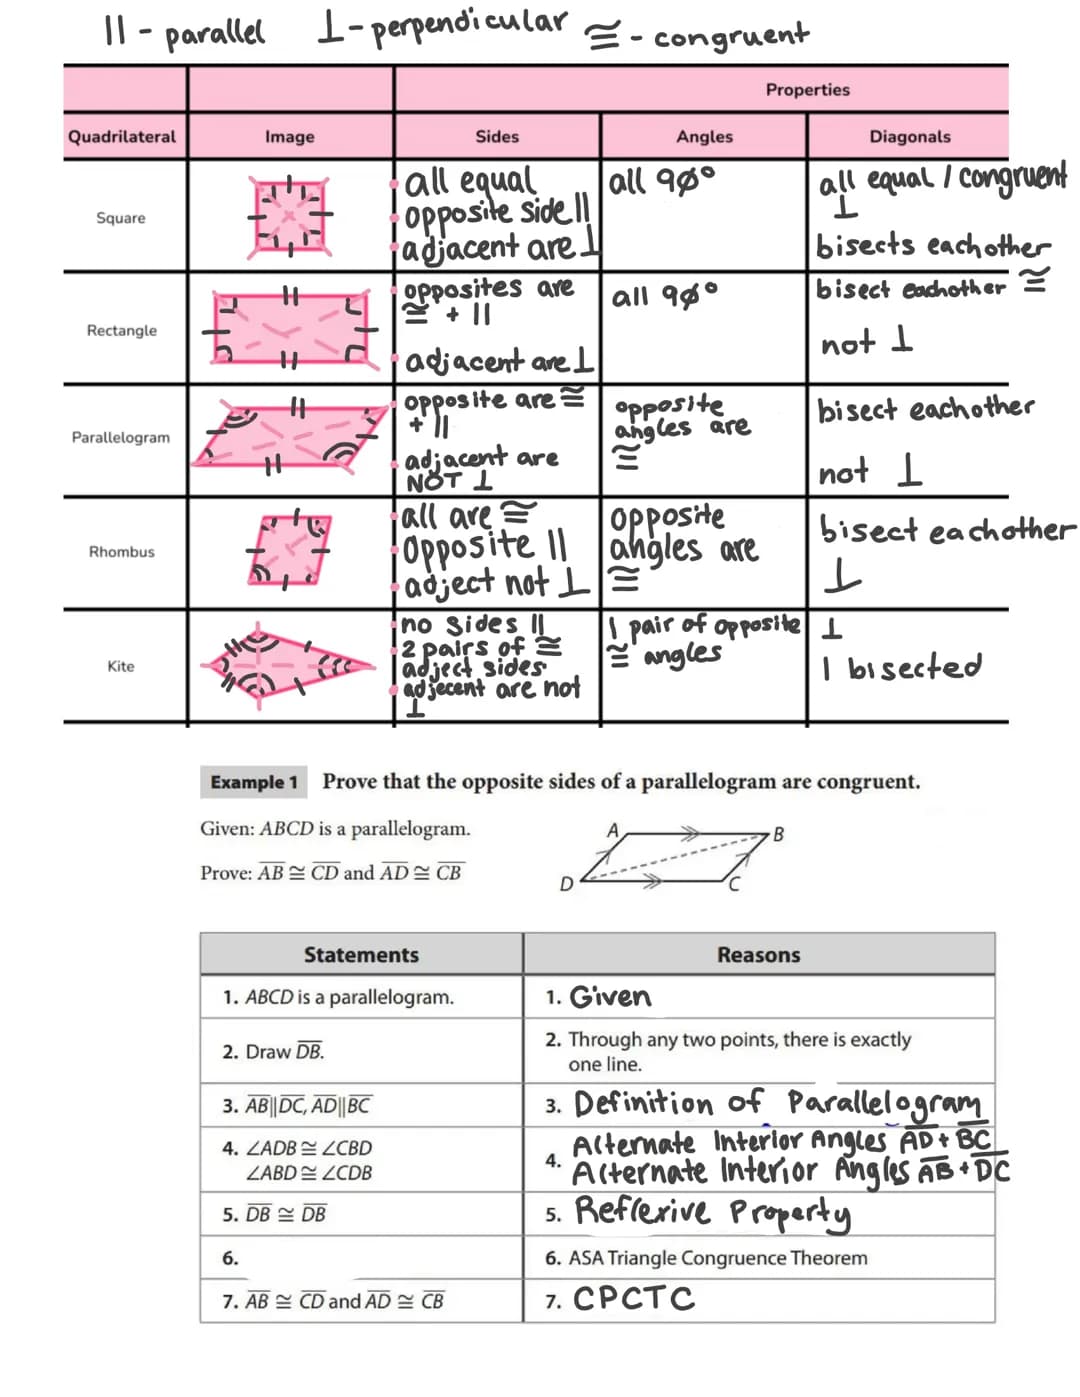 || - parallel ⊥-perpendicular ≅ - congruent
Properties
Quadrilateral Image Sides Angles Diagonals
Square
all equal
opposite side ||
adjacent are ⊥
all 90°
all equal / congruent
⊥
bisects eachother
Rectangle
opposites are
≅ + ||
adjacent are ⊥
all 90°
bisect eachother ≅
not ⊥
Parallelogram
opposite are ≅
+ ||
adjacent are
NOT ⊥
opposite
angles are
≅
bisect eachother
not ⊥
Rhombus
all are ≅
opposite ||
adject not ⊥
opposite
angles are
≅
bisect eachother
⊥
Kite
no sides ||
2 pairs of ≅
adject sides
adjecent are not
⊥
1 pair of opposite
≅ angles
⊥
1 bisected
Example 1 Prove that the opposite sides of a parallelogram are congruent.
Given: ABCD is a parallelogram.
Prove: A̅B̅ ≅ C̅D̅ and A̅D̅ ≅ C̅B̅
A
B
D
C
Statements Reasons
1. ABCD is a parallelogram. 1. Given
2. Draw D̅B̅. 2. Through any two points, there is exactly
one line.
3. A̅B̅||D̅C̅, A̅D̅||B̅C̅ 3. Definition of Parallelogram
4. ∠ADB ≅ ∠CBD
∠ABD ≅ ∠CDB
4. Alternate Interior Angles A̅D̅ + B̅C̅
Alternate Interior Angles A̅B̅ + D̅C̅
5. D̅B̅ ≅ D̅B̅ 5. Reflexive Property
6. 6. ASA Triangle Congruence Theorem
7. A̅B̅ ≅ C̅D̅ and A̅D̅ ≅ C̅B̅ 7. CPCTC